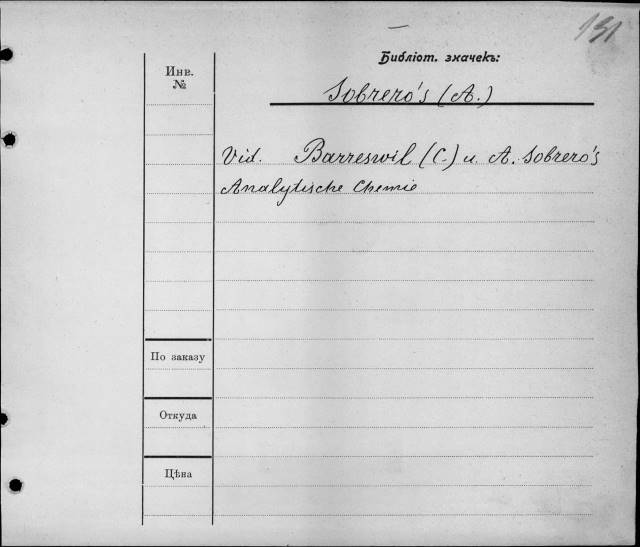 131
Библіот. значекъ:
Инв.
№
Sobrero's (A.)
Vid. Barreswil (C.) u. A. Sobrero's
Analytische Chemie
По заказу
Откуда
Цѣна